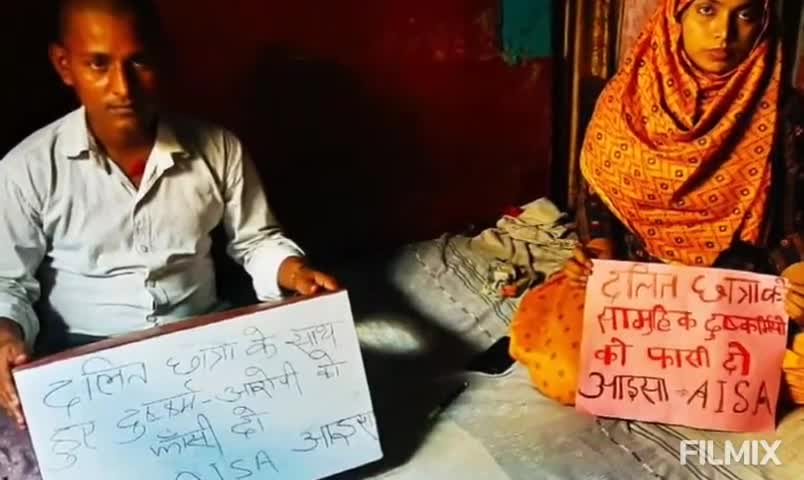 दलित छात्रा के साथ
हुए दुष्कर्म - आरोपी को
फाँसी दो
AISA आइसा
दलित छात्रा के
सामुहिक दुष्कर्मियों
को फासी दो
आइसा - AISA
FILMIX